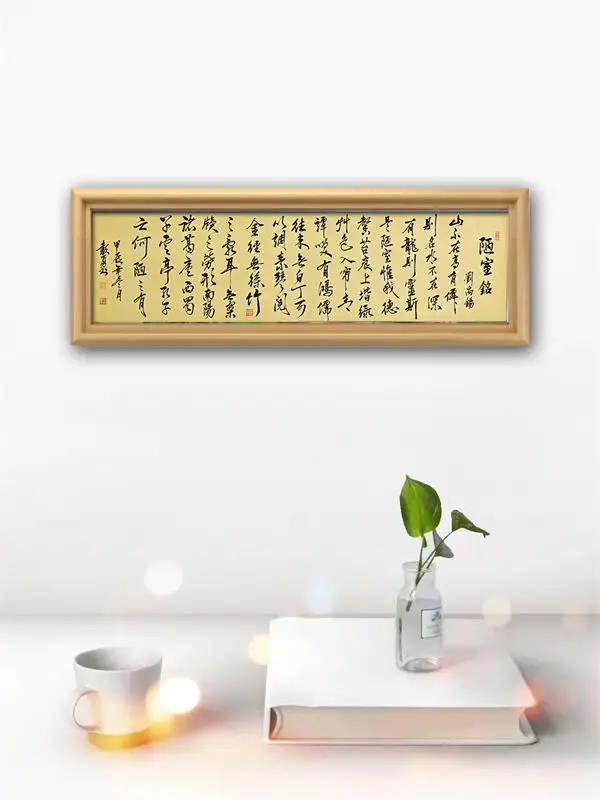 陋室銘
劉禹錫
山不在高有僊
則名水不在深
有龍則靈斯
是陋室惟我德
馨苔痕上堦綠
艸色入簾青
譚笑有鴻儒
往来無白丁可
以調素琴閱
金經無絲竹
之亂耳無案
牘之勞形南陽
諸葛廬西蜀
子雲亭孔子
云何陋之有
甲辰
月